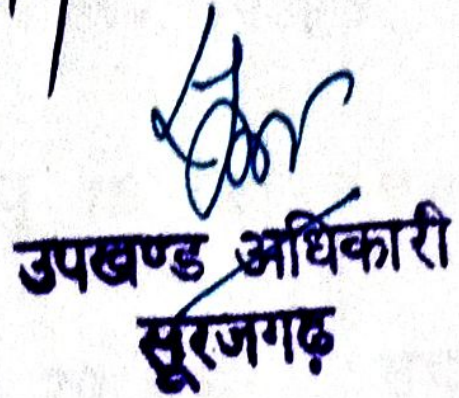 उपखण्ड अधिकारी
सूरजगढ़